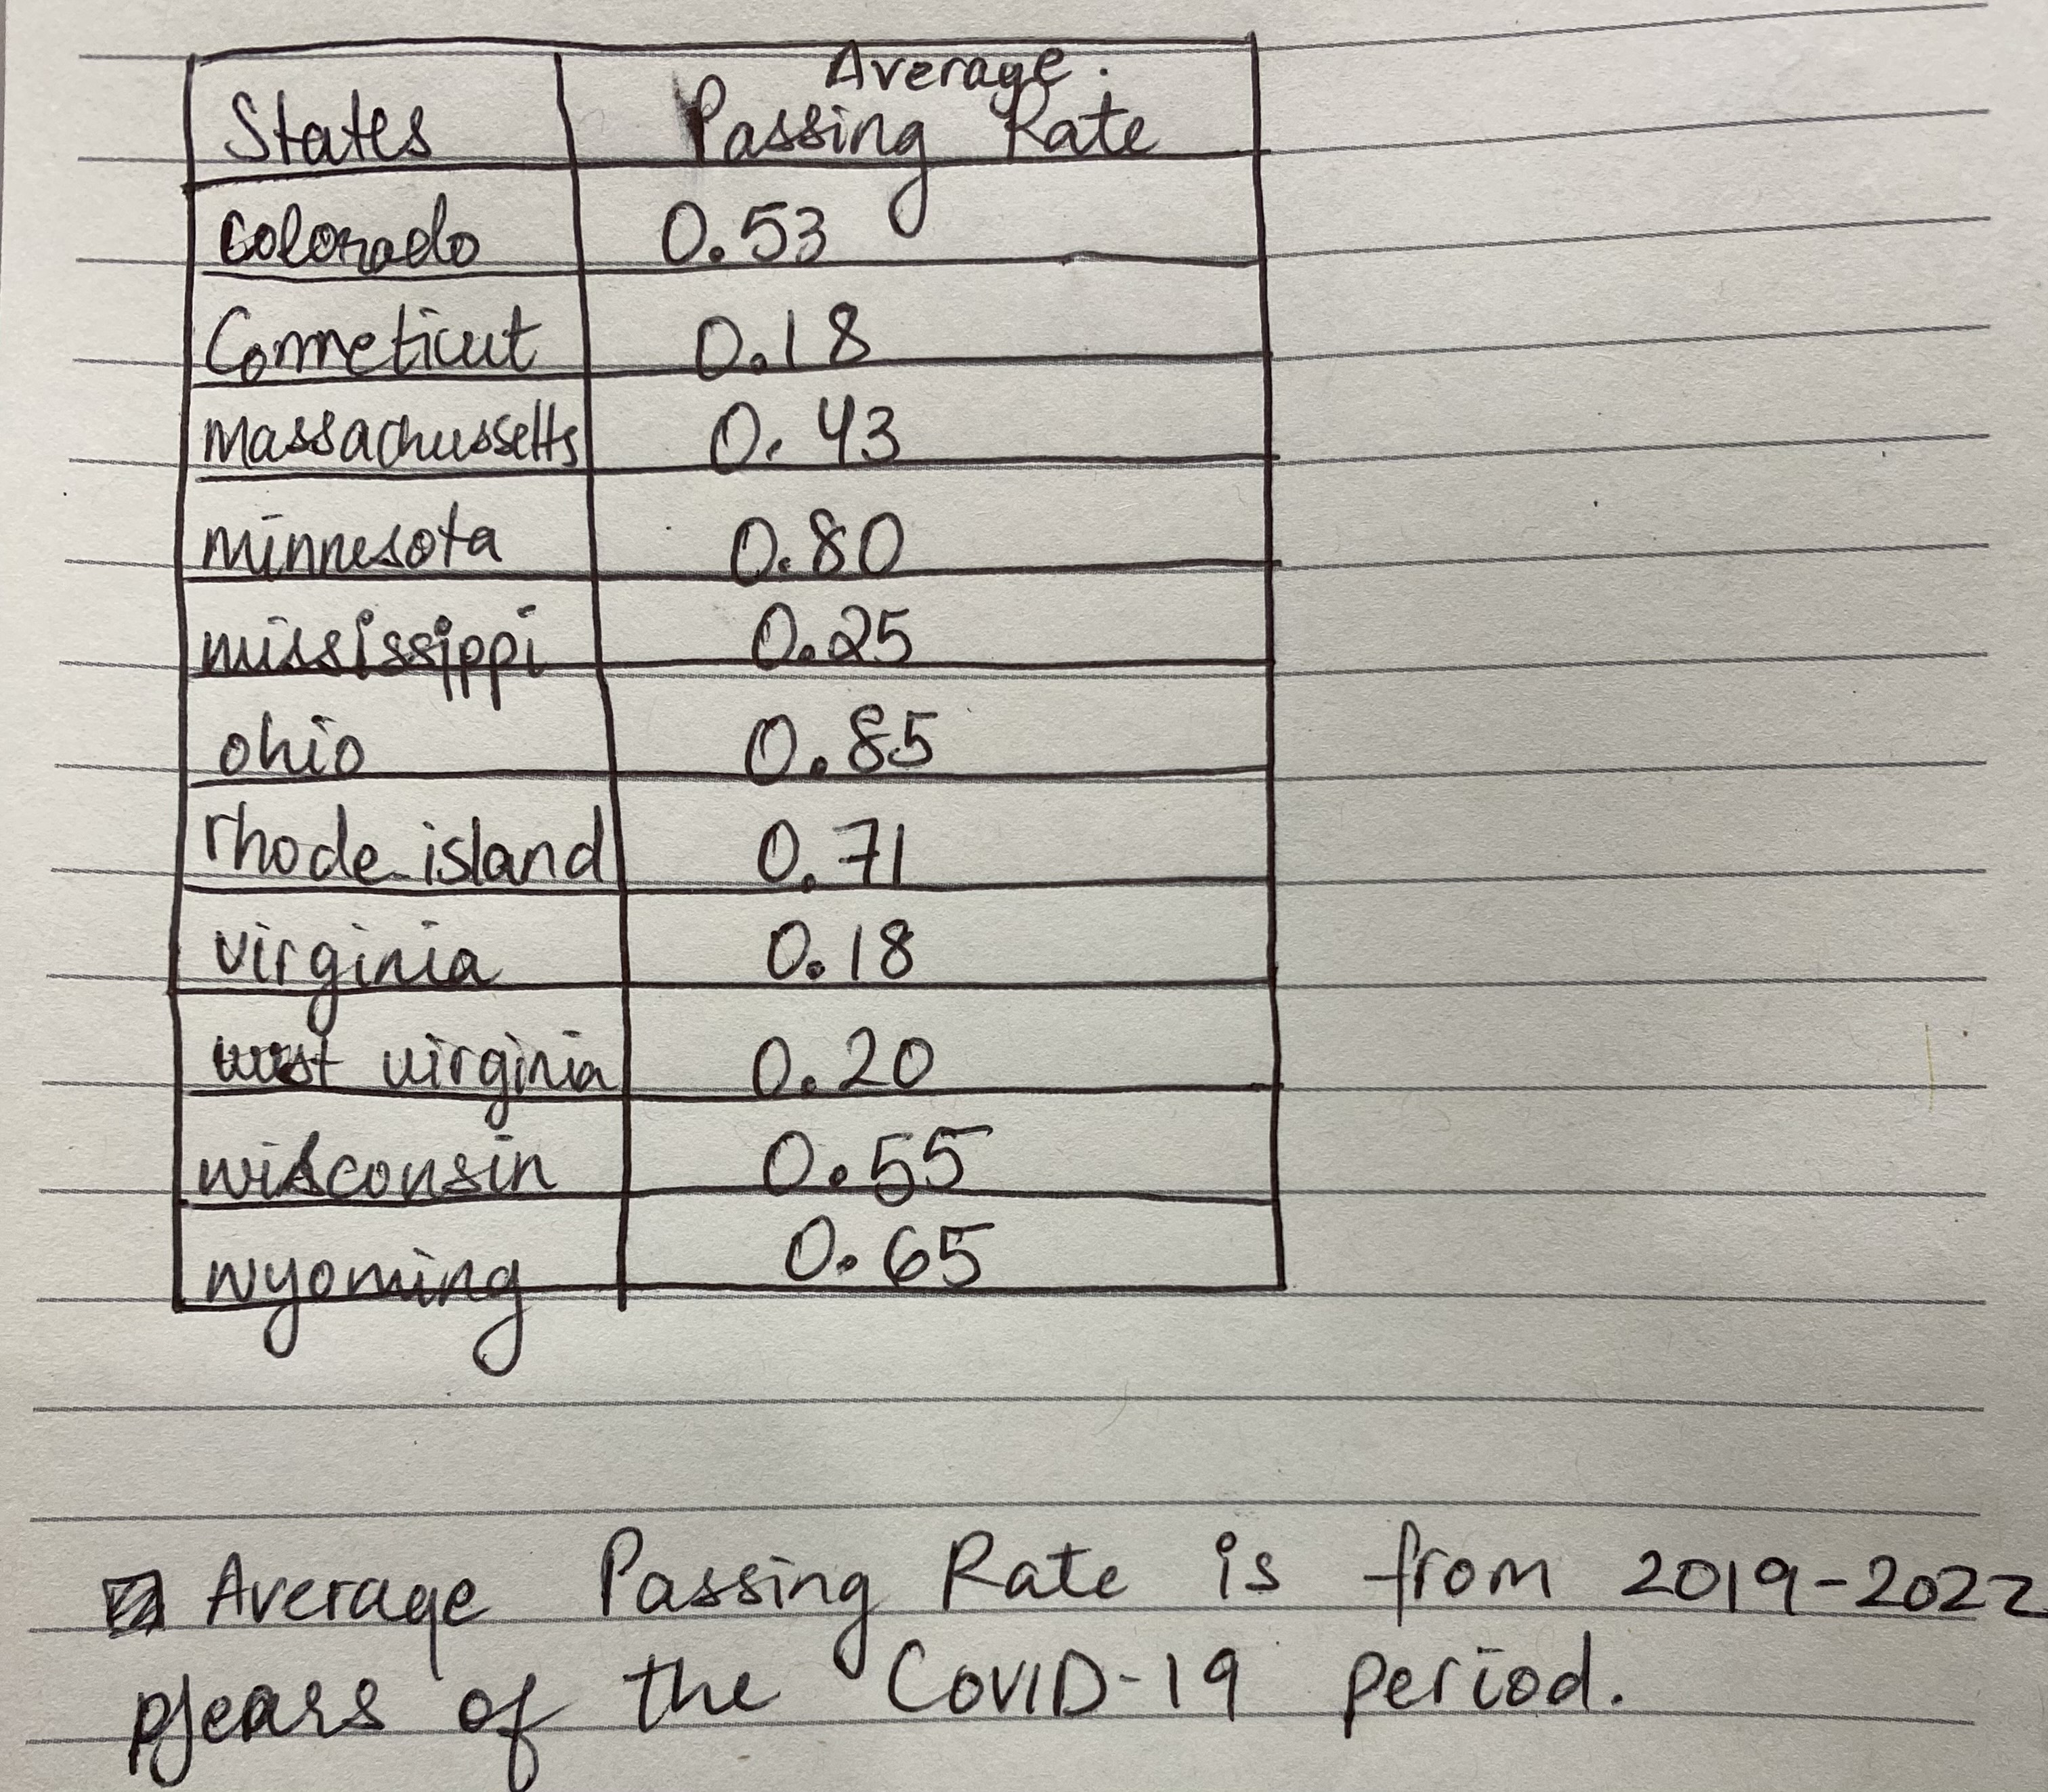 Average.
States Passing Rate
Colorado 0.53
Conneticut 0.18
Massachussetts 0.43
minnesota 0.80
mississippi 0.25
ohio 0.85
rhode island 0.71
virginia 0.18
west virginia 0.20
wisconsin 0.55
wyoming 0.65
Average Passing Rate is from 2019-2022
years of the COVID-19 period.